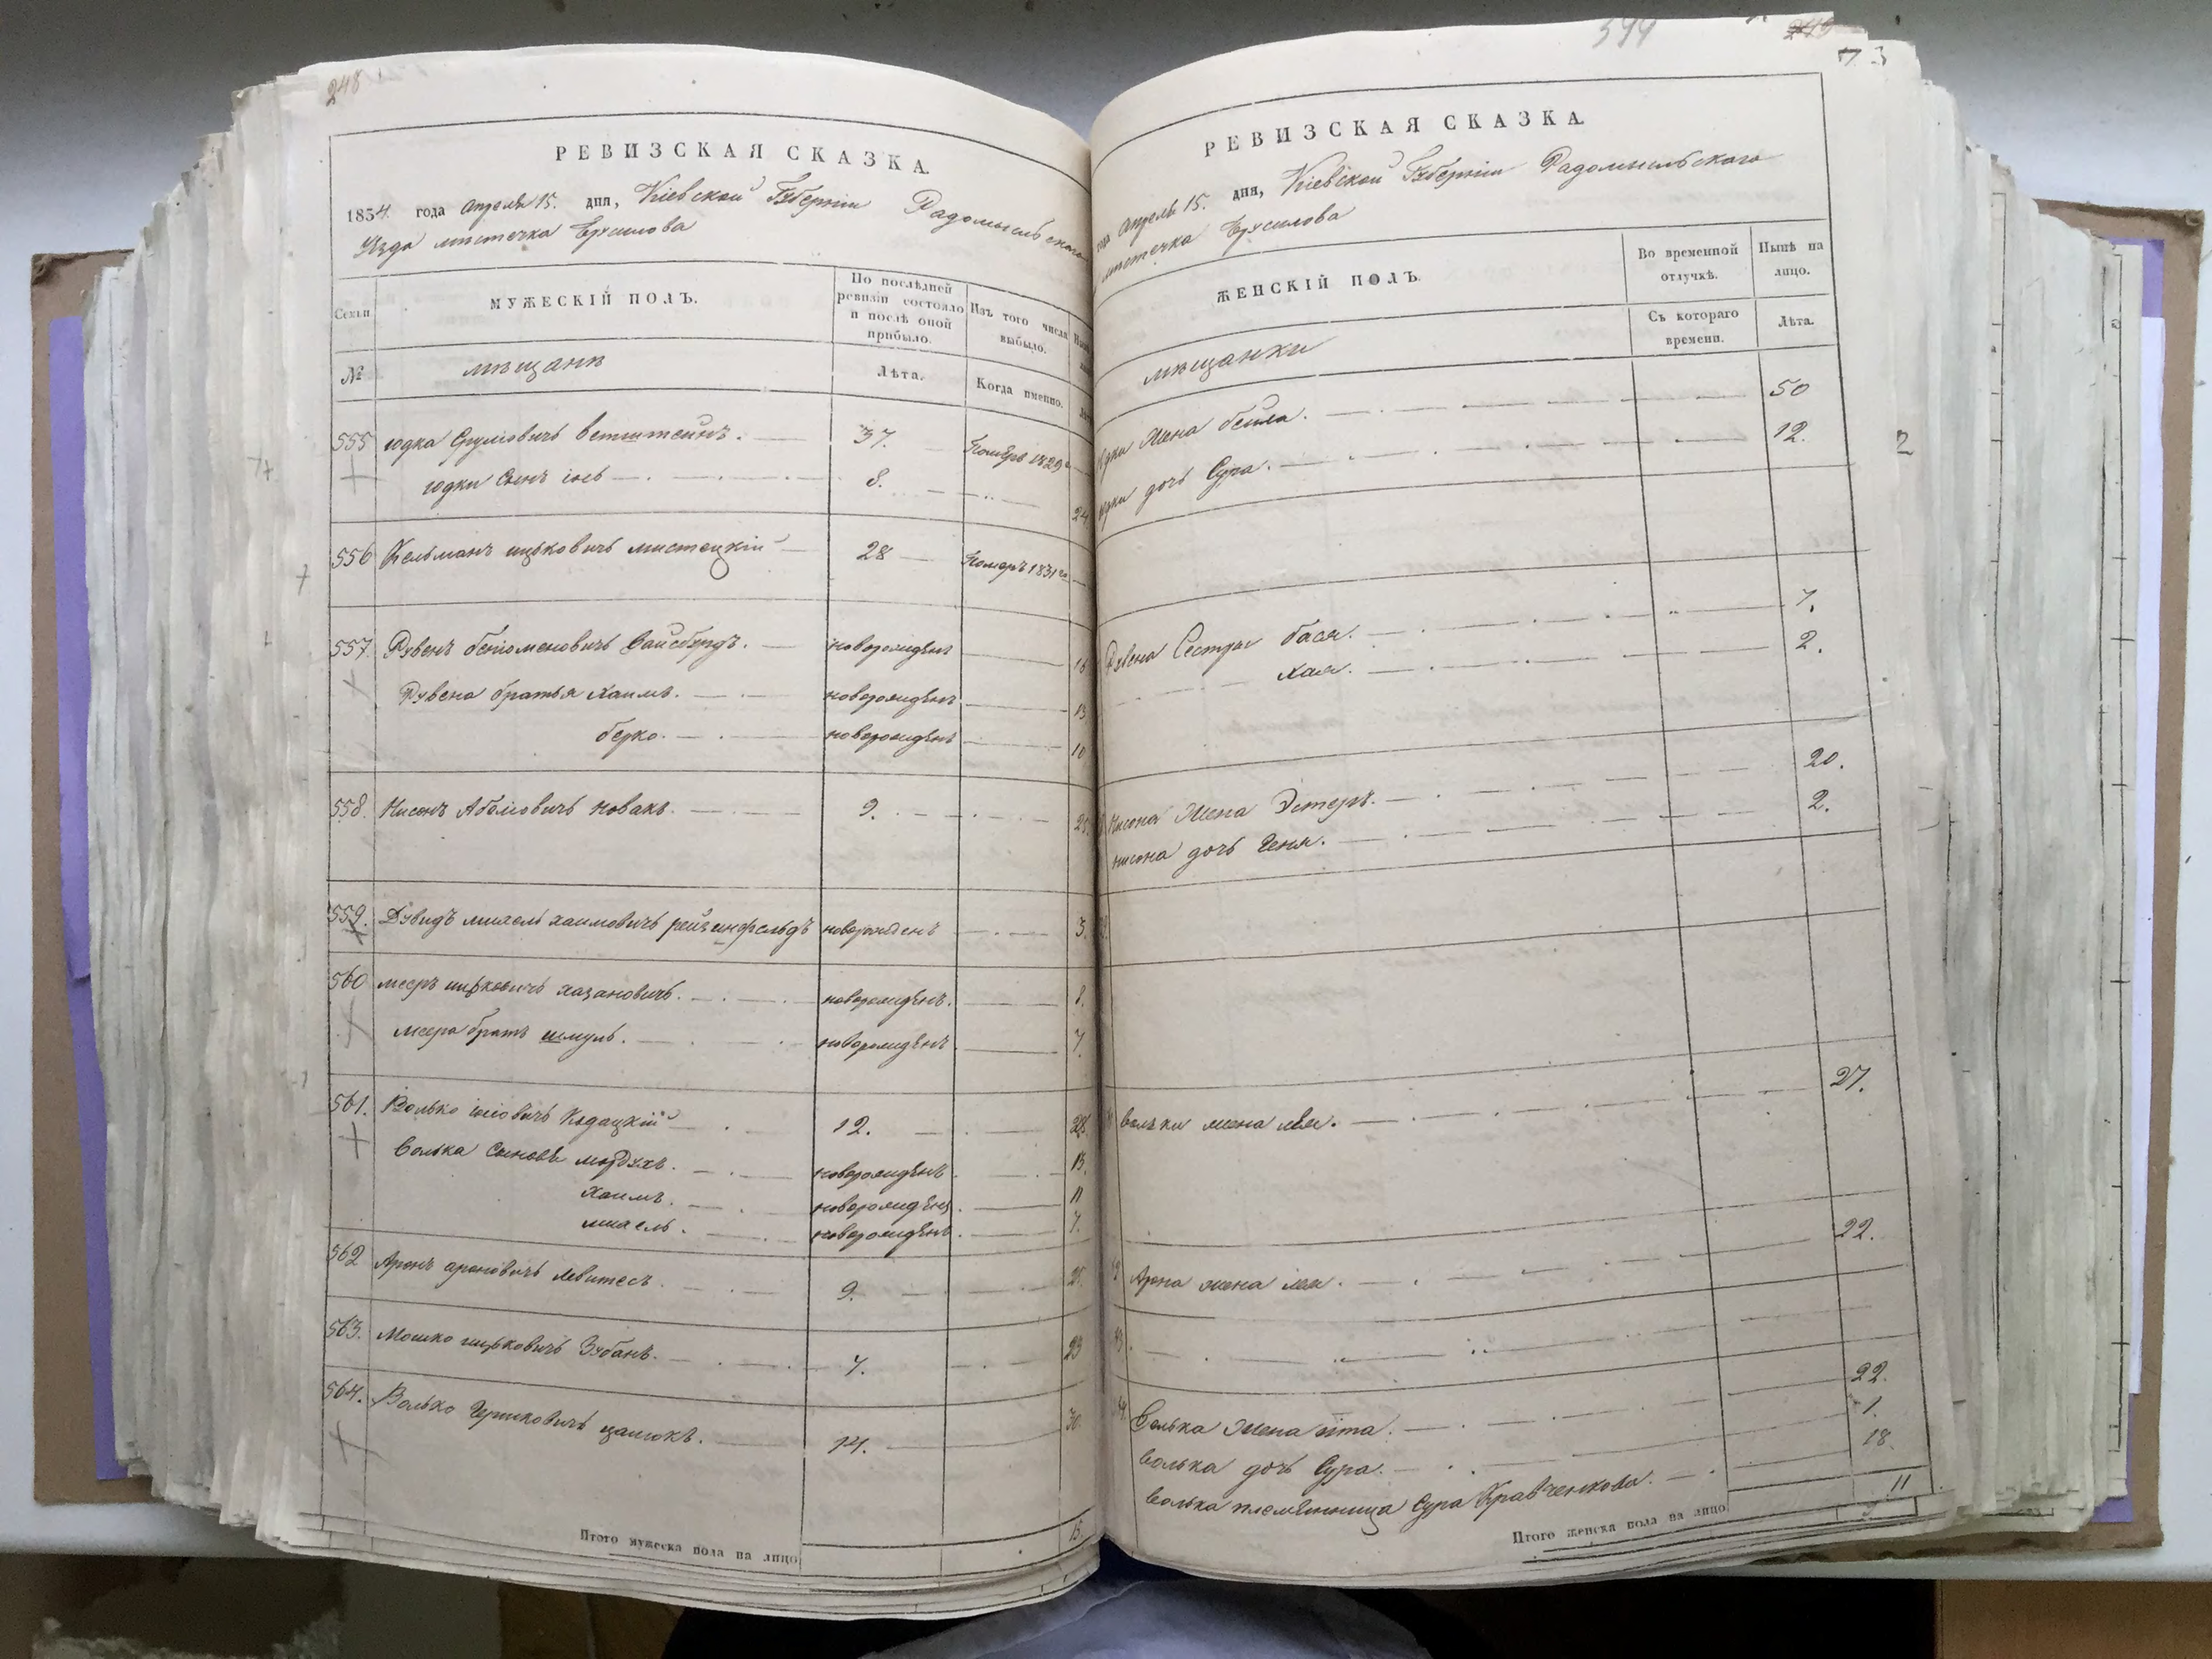 248
РЕВИЗСКАЯ СКАЗКА.
1854 года Апреля 15. дня, Кіевской Губерніи Радомысльскаго
Уезда местечка Брусилова
Семьи
МУЖЕСКІЙ ПОЛЪ.
По послѣдней ревизіи состояло и послѣ оной прибыло.
Изъ того числа выбыло.
№
мещане
Лѣта.
Когда именно.
555 юдка Сруліовичъ Ветштейнъ. 37. 1829
юдки Сынъ 8. 24
556 Кельманъ ицьковичъ мистецкій 28 Померъ 1831
557 Рувенъ беніоменовичъ новорожденъ 16
Рувена братья Хаимъ. новорожденъ 13
берко. новорожденъ 10
558. Нисонъ Абеліовичъ Новакъ. 9.
559. Дувидъ михель хаимовичъ рейзинфельдъ новорожденъ 3.
560 мееръ ицьковичъ хазановичъ. новорожденъ. 8.
меера братъ шмуль. новорожденъ 7.
561. Волько 12. 28.
Волька Сыновья мордухъ. новорожденъ 13.
Хаимъ. новорожденъ. 11
михель. новорожденъ. 7.
562 Аронъ ароновичъ Левитесъ. 9. 25.
563. Мошко ицьковичъ Зубанъ. 7. 23
564. Волько цацюкъ. 14. 30.
Итого мужеска пола на лицо 15.
599
249
73
РЕВИЗСКАЯ СКАЗКА.
Апреля 15. дня, Кіевской Губерніи Радомысльскаго
местечка Брусилова
ЖЕНСКІЙ ПОЛЪ.
Во временной отлучкѣ.
Нынѣ на лицо.
Съ котораго времени.
Лѣта.
мещанки
Жена бейла. 50
дочь Сура. 12.
2
Рувена Сестры бася. 7.
хая. 2.
Нисона Жена Эстеръ. 20.
нисона дочь Геня. 2.
Вольки жена лея. 27.
Арона жена лея. 22.
Волька Жена ита. 22.
Волька дочь Сура. 1.
Волька племянница Сура Кравченкова. 18.
Итого женска пола на лицо 11